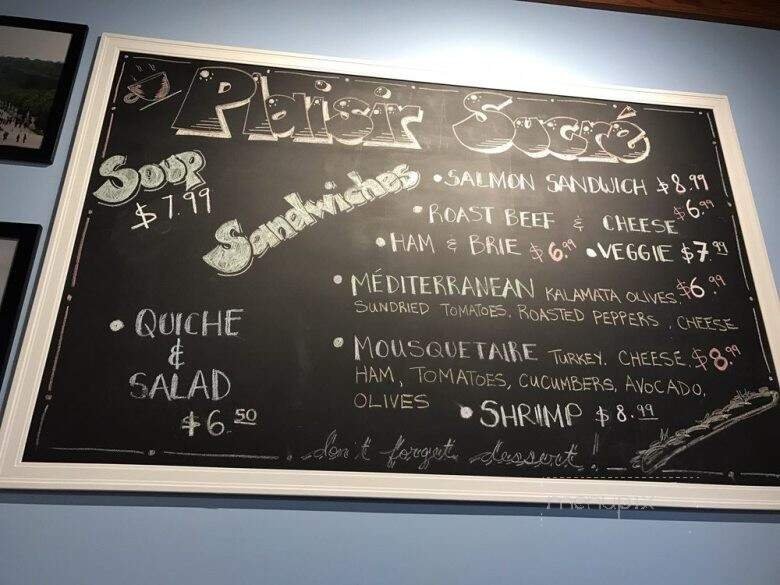 Plaisir Sucré
Soup
$7.99
Sandwiches
• SALMON SANDWICH $8.99
• ROAST BEEF & CHEESE $6.99
• HAM & BRIE $6.99 • VEGGIE $7.99
• MÉDITERRANEAN KALAMATA OLIVES, $6.99
SUNDRIED TOMATOES, ROASTED PEPPERS, CHEESE
• MOUSQUETAIRE TURKEY, CHEESE, $8.99
HAM, TOMATOES, CUCUMBERS, AVOCADO,
OLIVES • SHRIMP $8.99
• QUICHE
&
SALAD
$6.50
don't forget dessert!
menupix